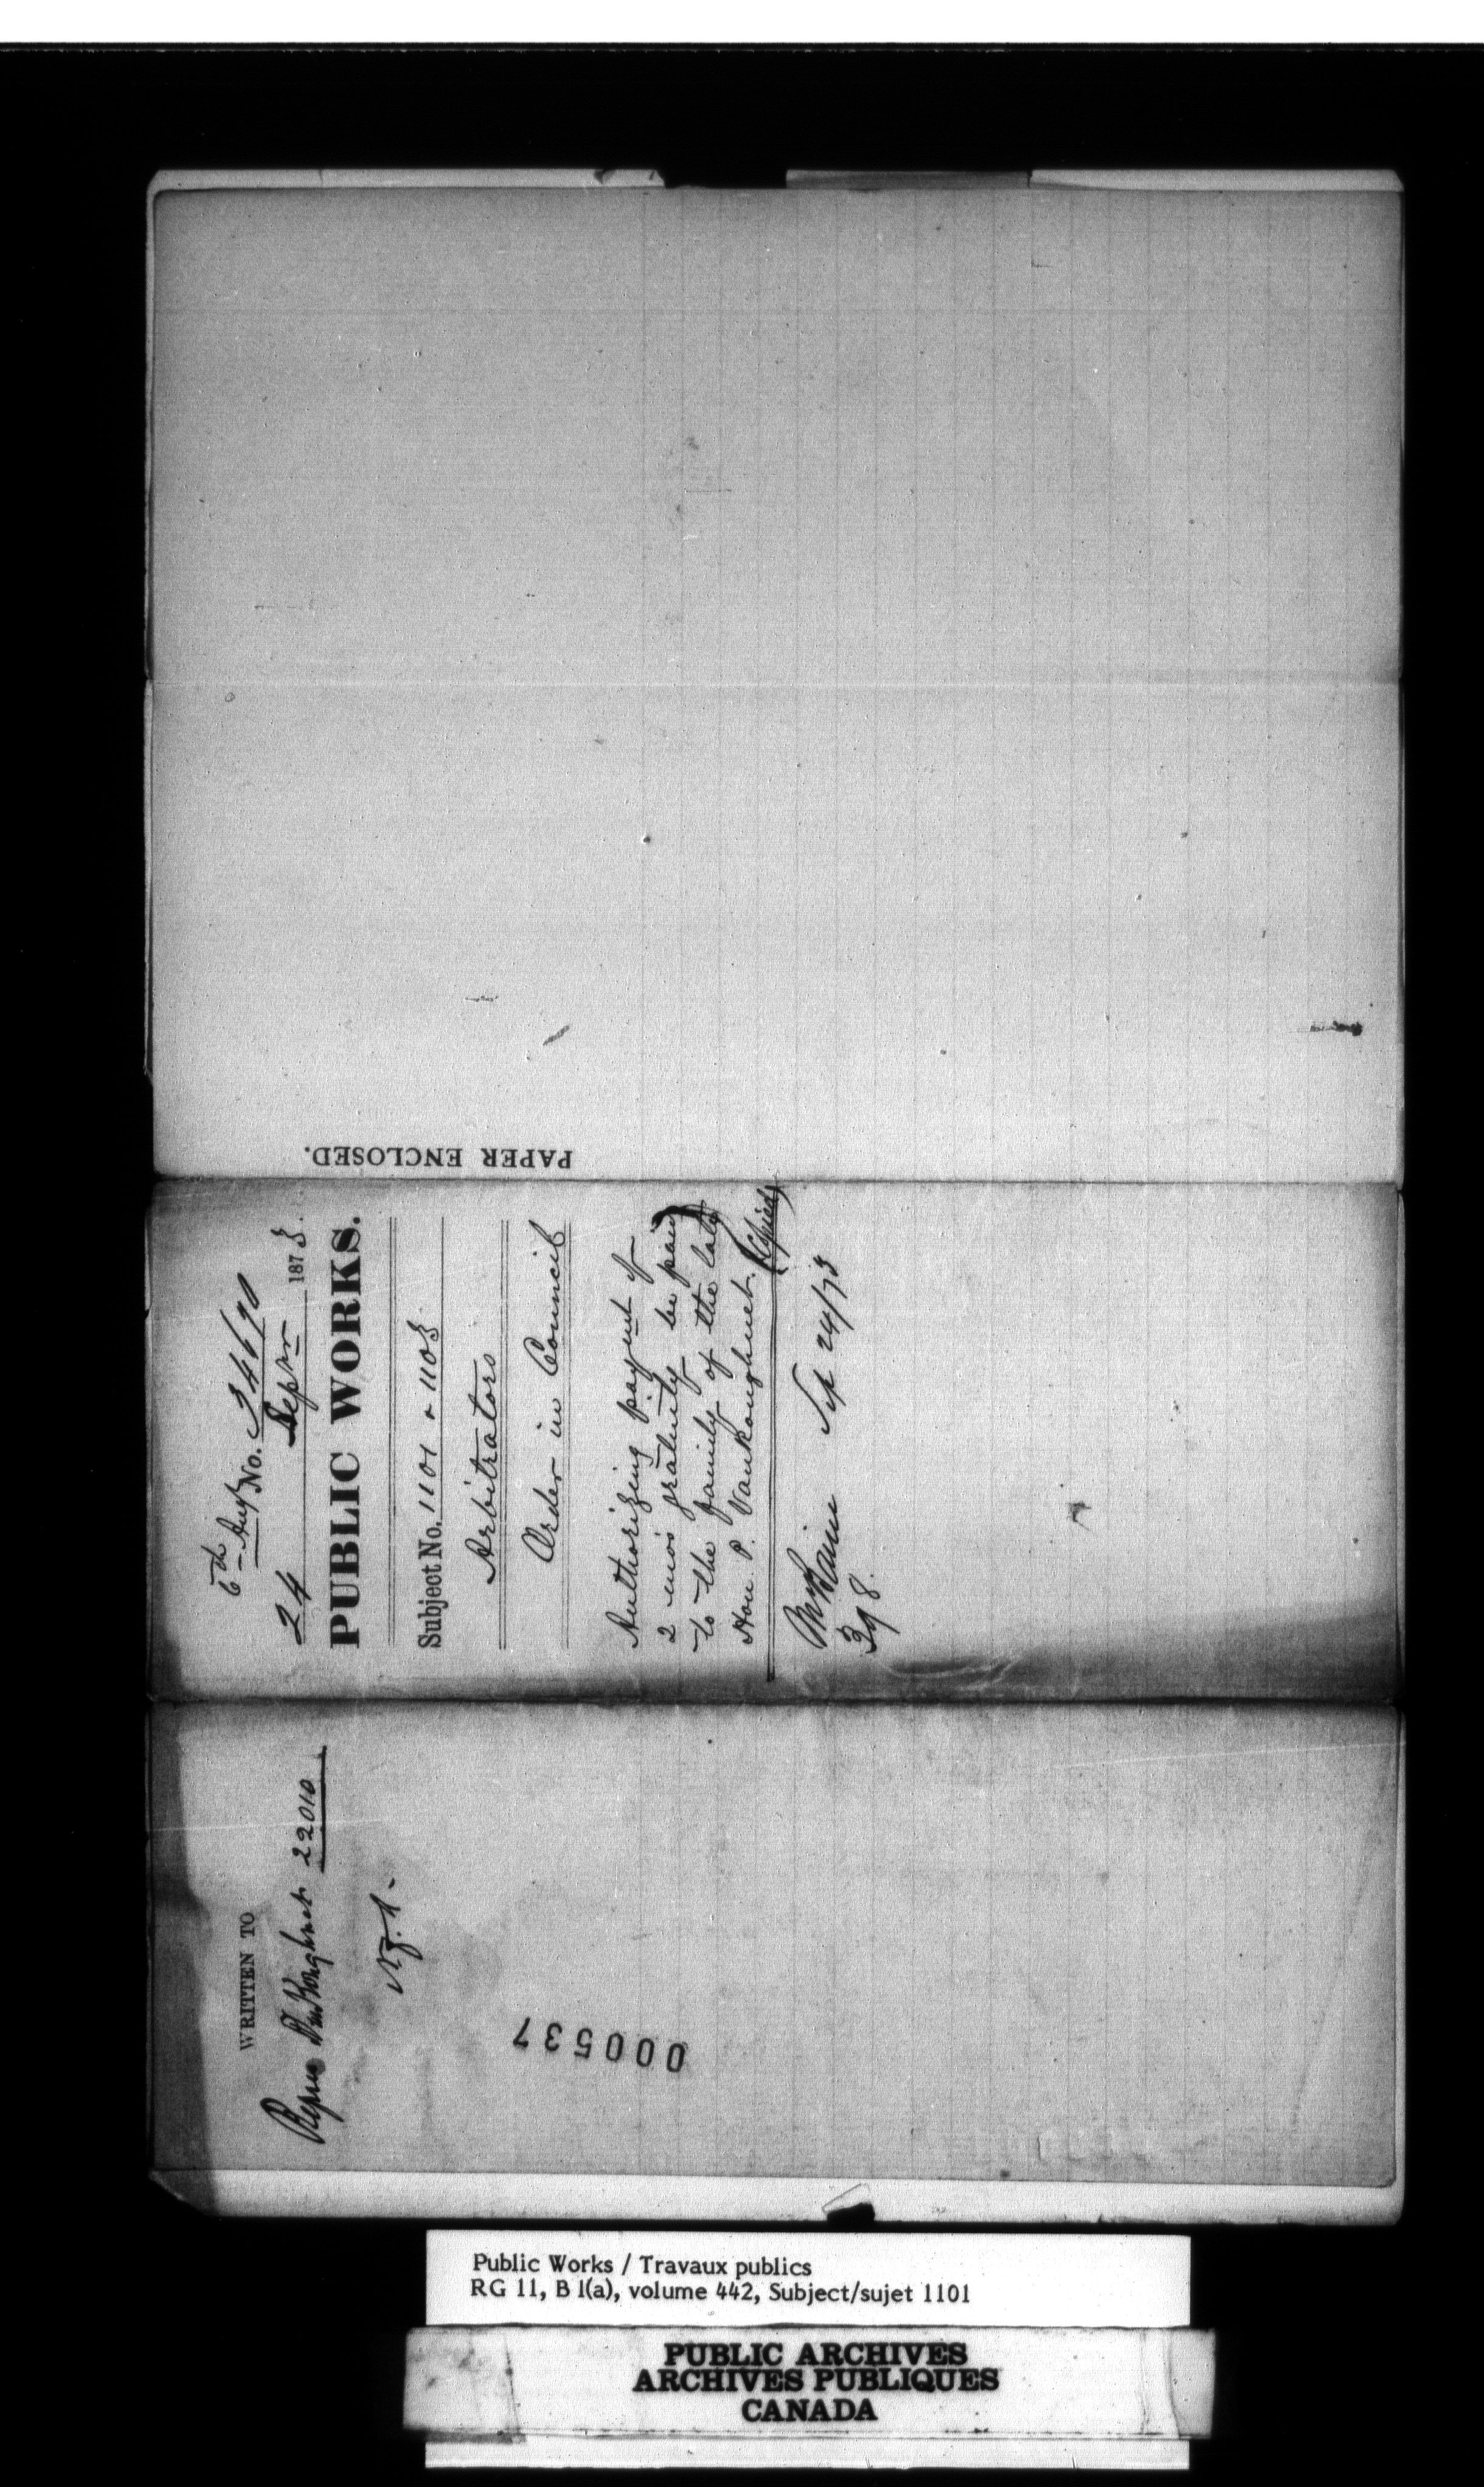 PAPER ENCLOSED.
6th Aug
No. 34690
24 Septr 1873.
PUBLIC WORKS.
Subject No. 1101 & 1103
Arbitrators
Order in Council
Authorizing paymt of
2 mos gratuity be paid
to the family of the late
Hon. P. Vankoughnet. (Copied)
Mr Baine Sep 24/73
398.
WRITTEN TO
VanKoughnet 22010
000537
Public Works / Travaux publics
RG 11, B 1(a), volume 442, Subject/sujet 1101
PUBLIC ARCHIVES
ARCHIVES PUBLIQUES
CANADA